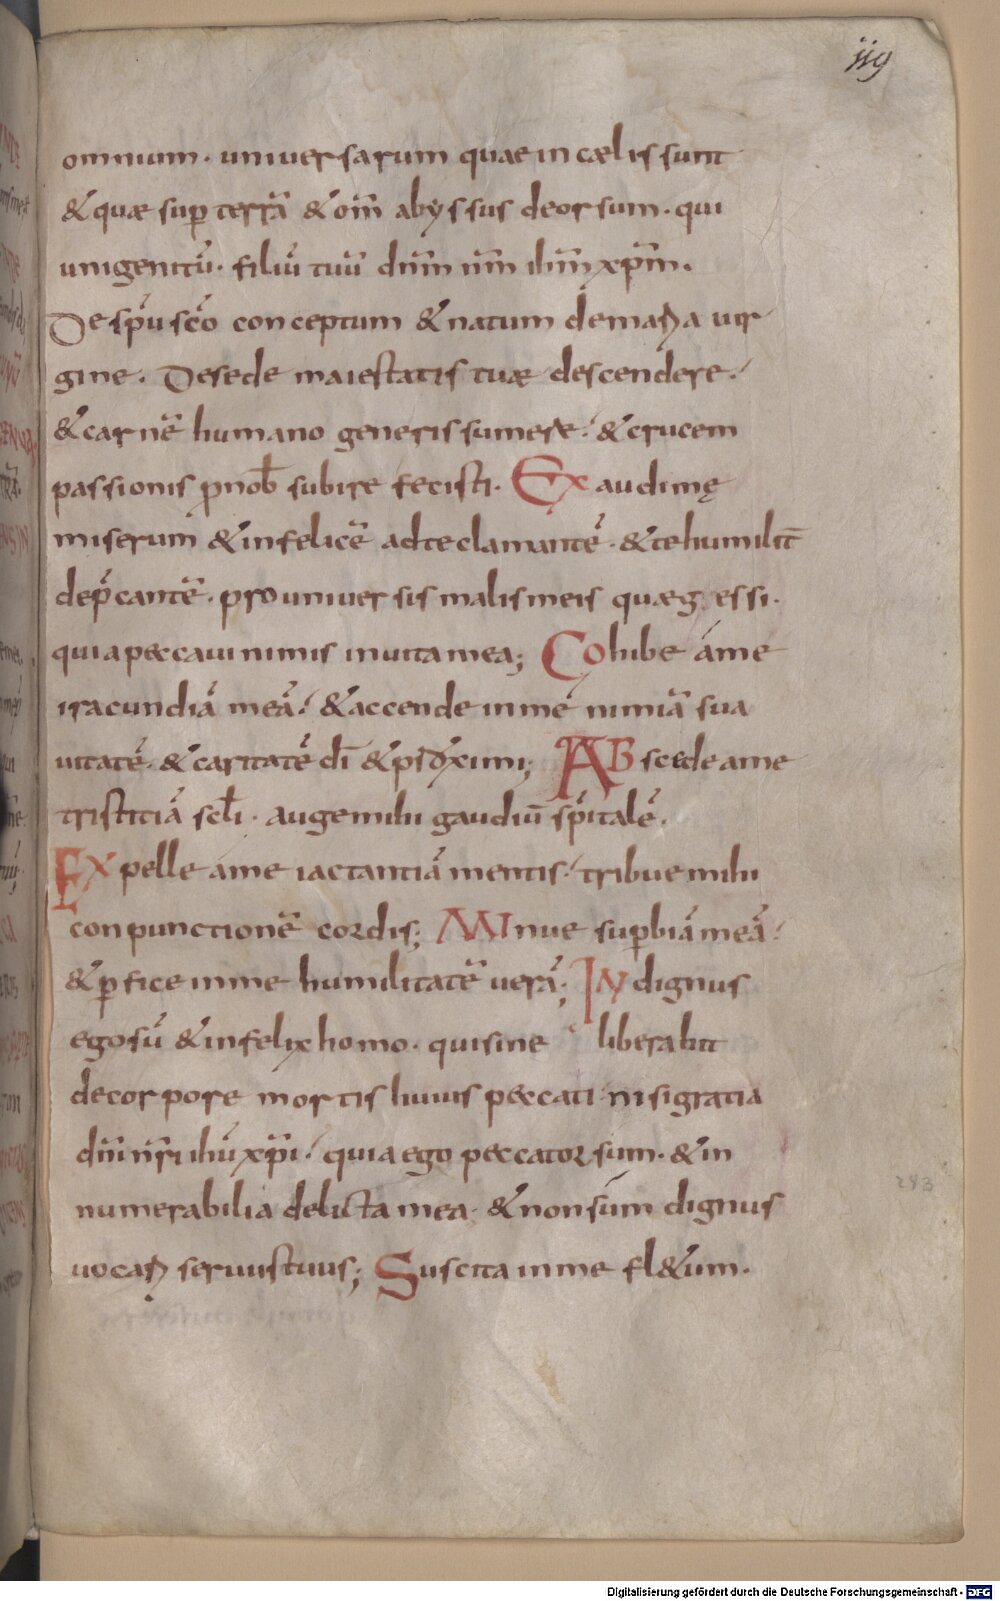 119
omnium. uniuersarum quae in cælis sunt
& quæ sup̄ terrā & om̄ abyssus deorsum. qui
unigenitū. filiū tuū dn̄m nr̄m ih̄m xp̄m.
De sp̄u sc̄o conceptum & natum de maria uir
gine. De sede maiestatis tuæ descendere.
& carnē humano generis sumere. & crucem
passionis ꝓ nob̄ subire fecisti. Exaudi mę
miserum & infelicē ad te clamantē. & te humilit̄
dep̄cantē. pro uniuersis malis meis quæ gessi.
quia peccaui nimis in uita mea; Cohibe á me
iracundiā meā. & accende in me nimiā sua
uitatē. & caritatē dī & proximi; Abscide a me
tristitiā sc̄li. auge mihi gaudiū sp̄italē.
Expelle á me iactantiā mentis. tribue mihi
conpunctionē cordis; Minue sup̄biā meā.
& ꝑfice in me humilitatē uerā; Indignus
ego sū & infelix homo. qui sine liberabit
de corpore mortis huius peccati nisi gratia
dn̄i nr̄i ih̄u xp̄i. quia ego peccator sum. & in
numerabilia delicta mea. & non súm dignus
uocari seruus tuus; Suscita in me fl&um.
283
Digitalisierung gefördert durch die Deutsche Forschungsgemeinschaft - DFG